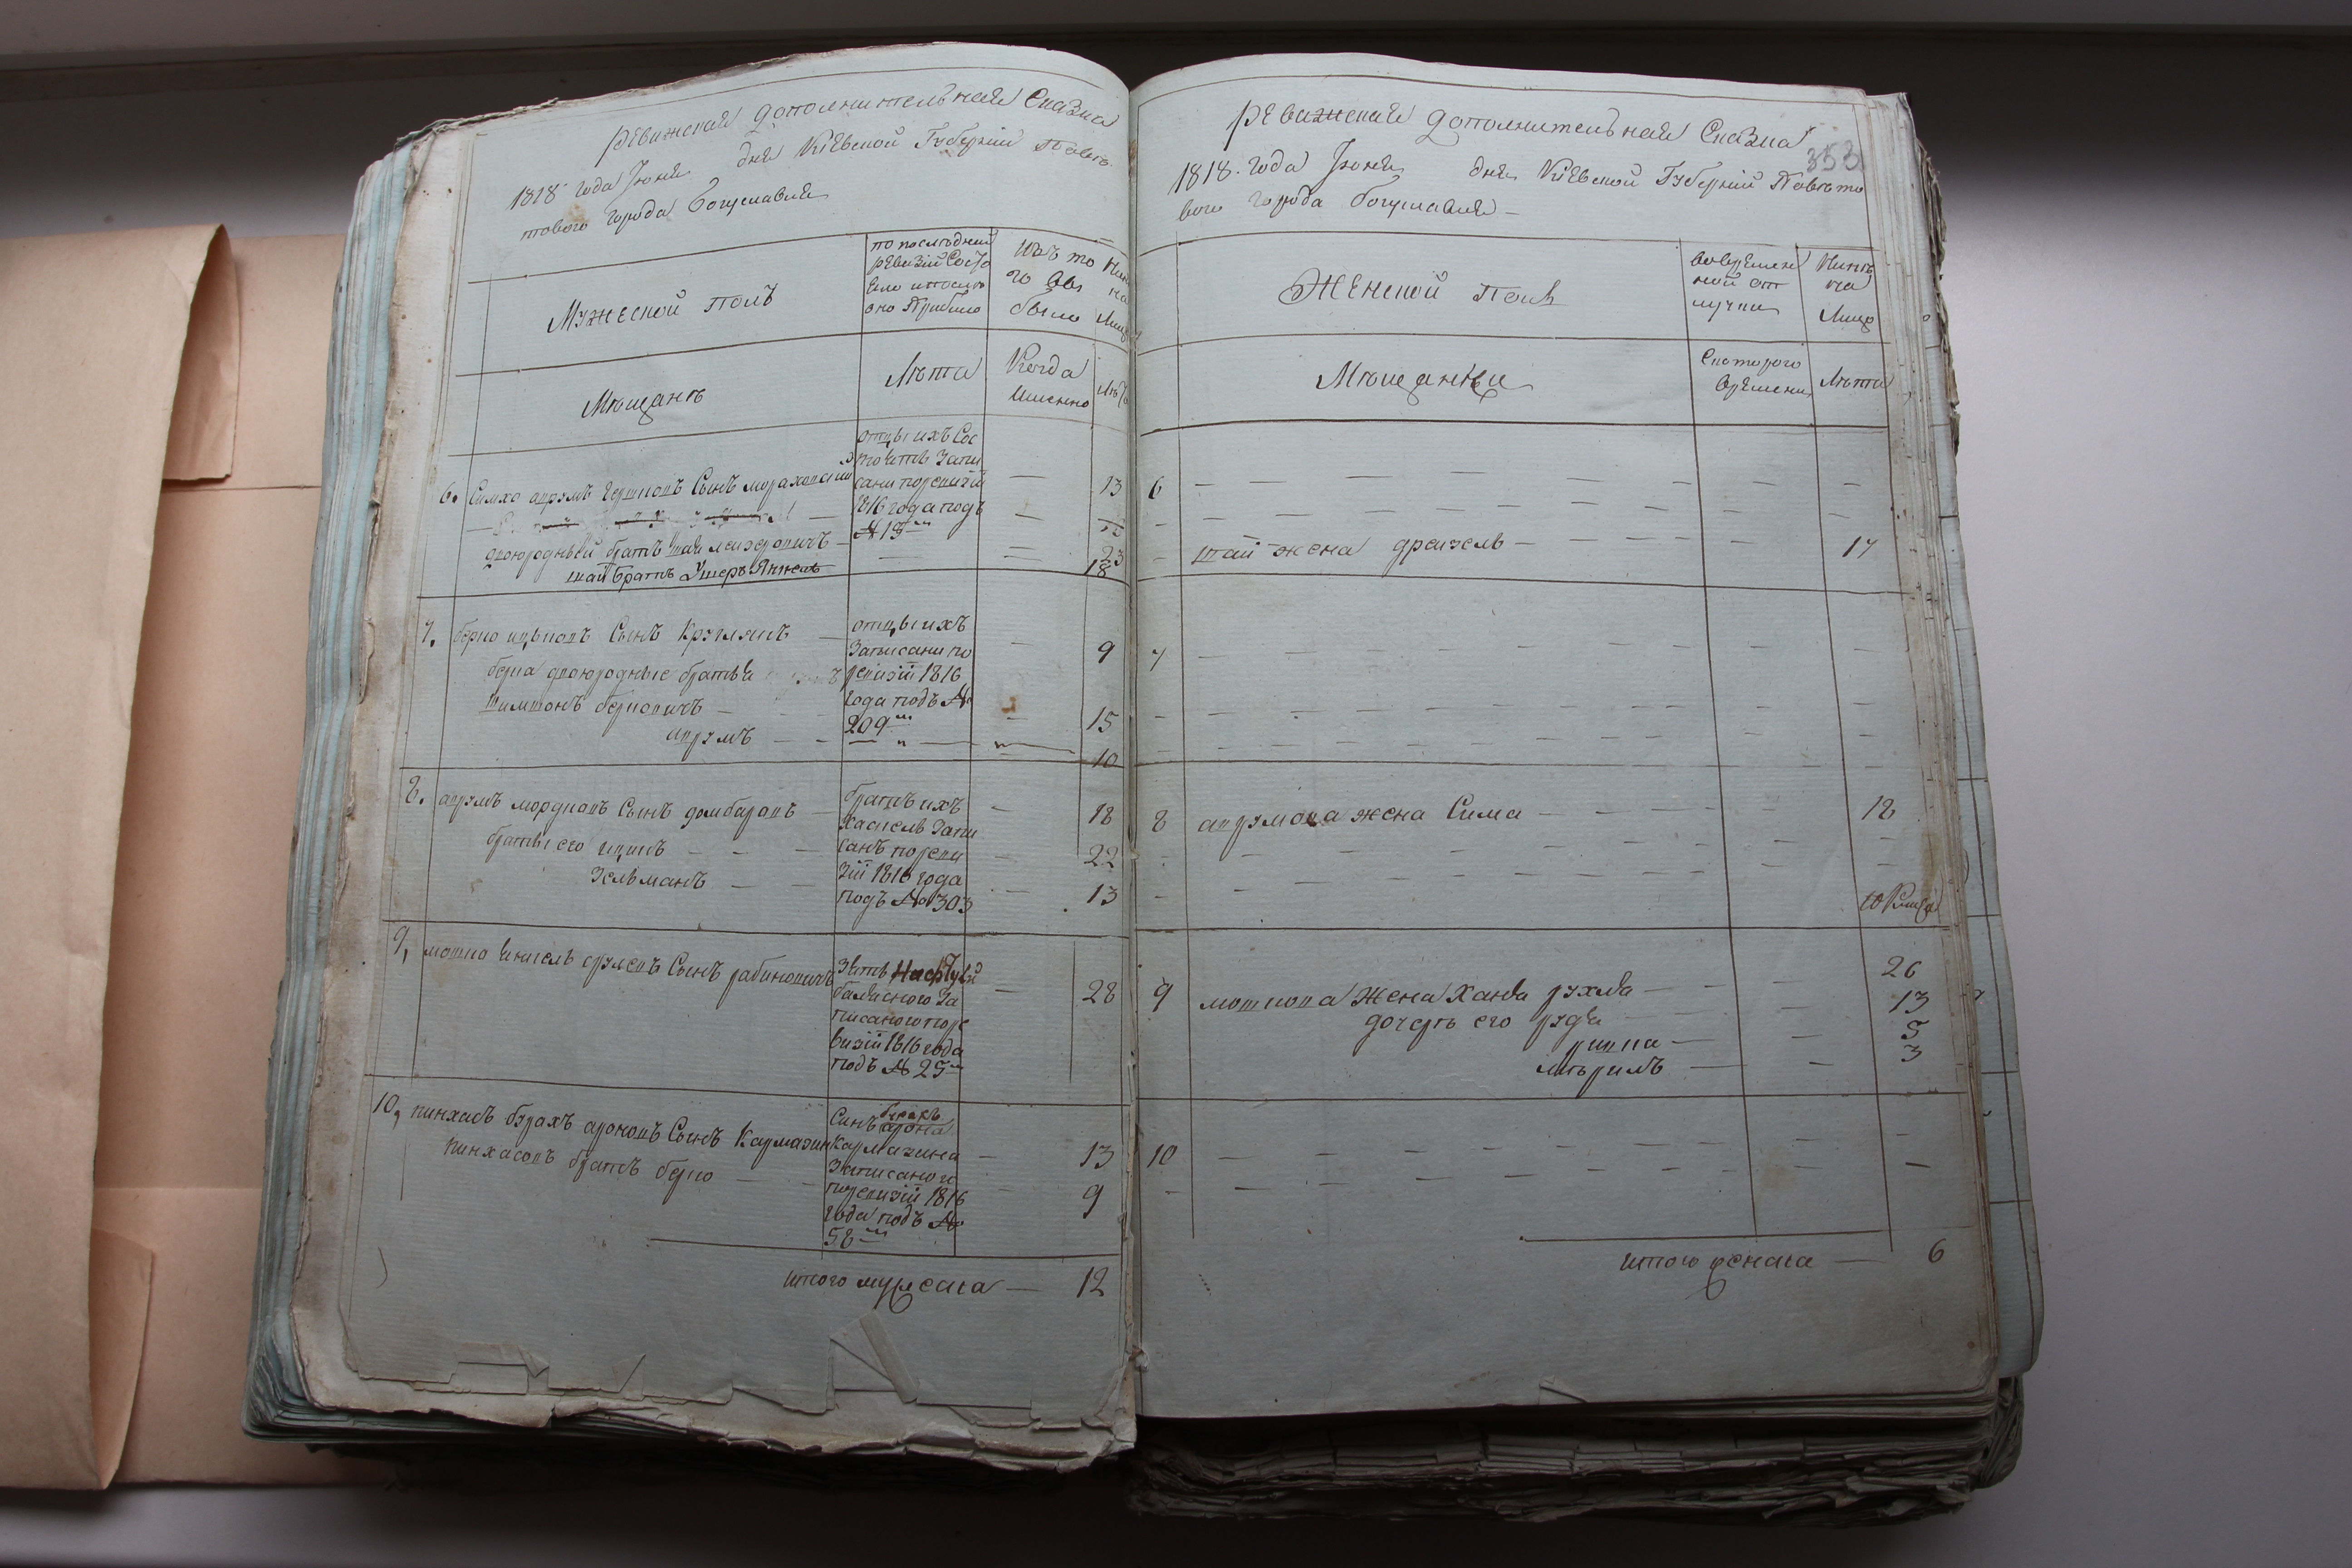 ревижская дополнительная Сказка
1818 года Июня дня Киевской Губернии Повѣ
тового города Богуславля
Мужеской полъ
по последней
ревизии Состо
яло и после
оно Прибыло
Изъ то
го вы
было
Мѣщанъ
Лѣта
Когда
именно
Лѣта
6. Симхо аврумъ Гершковъ Сынъ
двоюродный братъ
братъ Ушеръ Янкель
отцы ихъ Сос
тоятъ Запи
сани поревизіи
1816 года подъ
№ 15
13
23
18
7. берко ицковъ Сынъ Круглякъ
берка двоюродные братья
шимшонъ берковичъ
аврумъ
отцы ихъ
Записани по
ревизіи 1816
года подъ №
209
9
15
10
8. аврумъ мордковъ Сынъ домбаровъ
братья его ицикъ
Зельманъ
братъ ихъ
Хаскель Запи
санъ пореви
зіи 1816 года
подъ № 303
18
22
13
9, мошко сруловъ Сынъ рабиновичъ
Зять
Записаного поре
визіи 1816 года
подъ № 25
28
10, пинхасъ бурахъ ароновъ Сынъ Кармазинъ
пинхасовъ братъ берко
Синъ бурахъ
арона
Кармазина
Записаного
поревизіи 1816
года подъ №
58
13
9
итого мужеска — 12
ревижская дополнительная Сказка
353
1818. года Июня дня Киевской Губерніи Повѣто
вого города богуславля
Женской Полъ
вовремен
ной от
лучки
Мѣщанки
Скоторого
времени
Лѣта
6
жена дрейзель 17
7
8 аврумова жена Сима 18
9 мошкова Жена Хана рухля 26
дочерь его рудя 13
ривка 5
мѣримъ 3
10
итого женска — 6